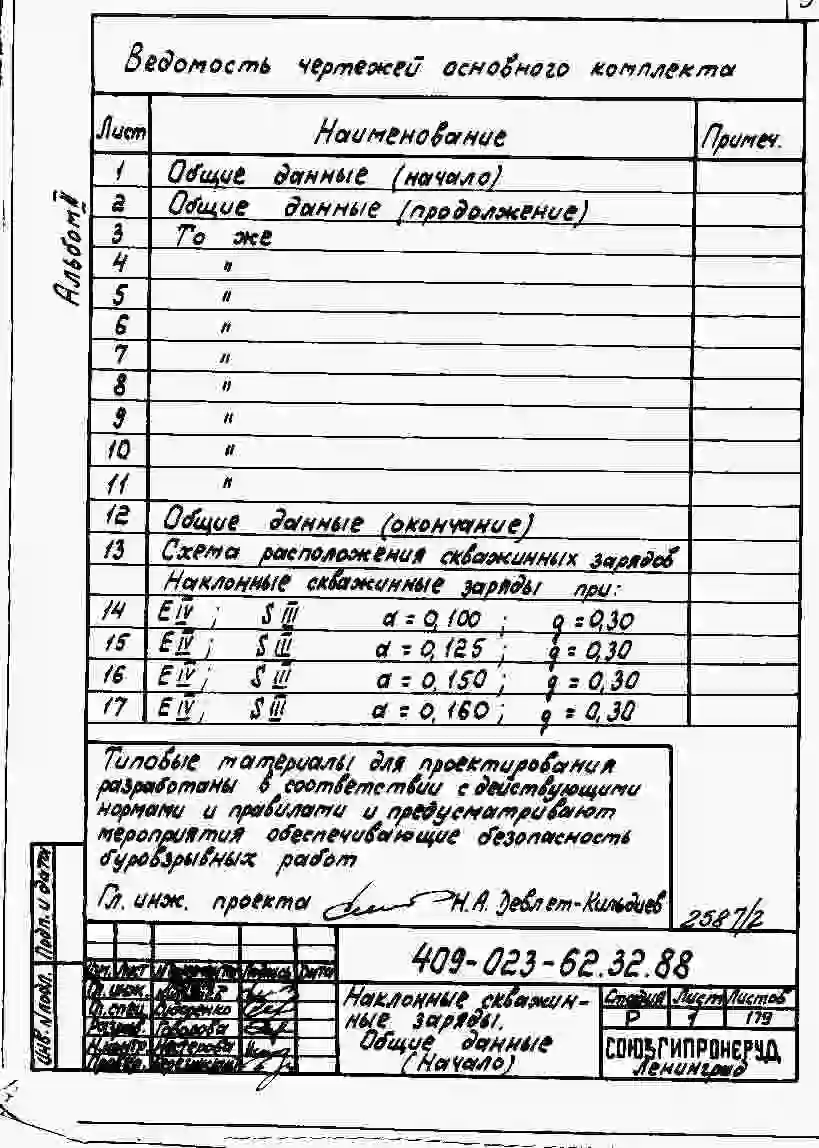 Ведомость чертежей основного комплекта
Лист Наименование Примеч.
1 Общие данные (начало)
2 Общие данные (продолжение)
3 То же
4 "
5 "
6 "
7 "
8 "
9 "
10 "
11 "
12 Общие данные (окончание)
13 Схема расположения скважинных зарядов
Наклонные скважинные заряды при:
14 E IV ; S III d = 0,100 ; q = 0,30
15 E IV ; S III d = 0,125 ; q = 0,30
16 E IV ; S III d = 0,150 ; q = 0,30
17 E IV ; S III d = 0,160 ; q = 0,30
Альбом II
Типовые материалы для проектирования
разработаны в соответствии с действующими
нормами и правилами и предусматривают
мероприятия обеспечивающие безопасность
буровзрывных работ
Гл. инж. проекта Н.А. Девлет-Кильдиев
2587/2
409-023-62.32.88
Изм. Лист Подпись Дата
Гл. инж.
Гл. спец.
Разраб. Говорова
Н.контр. Нестерова
Наклонные скважин-
ные заряды.
Общие данные
(Начало)
Стадия Лист Листов
Р 1 179
СОЮЗГИПРОНЕРУД
Ленинград
Подп. и дата
Инв. № подл.